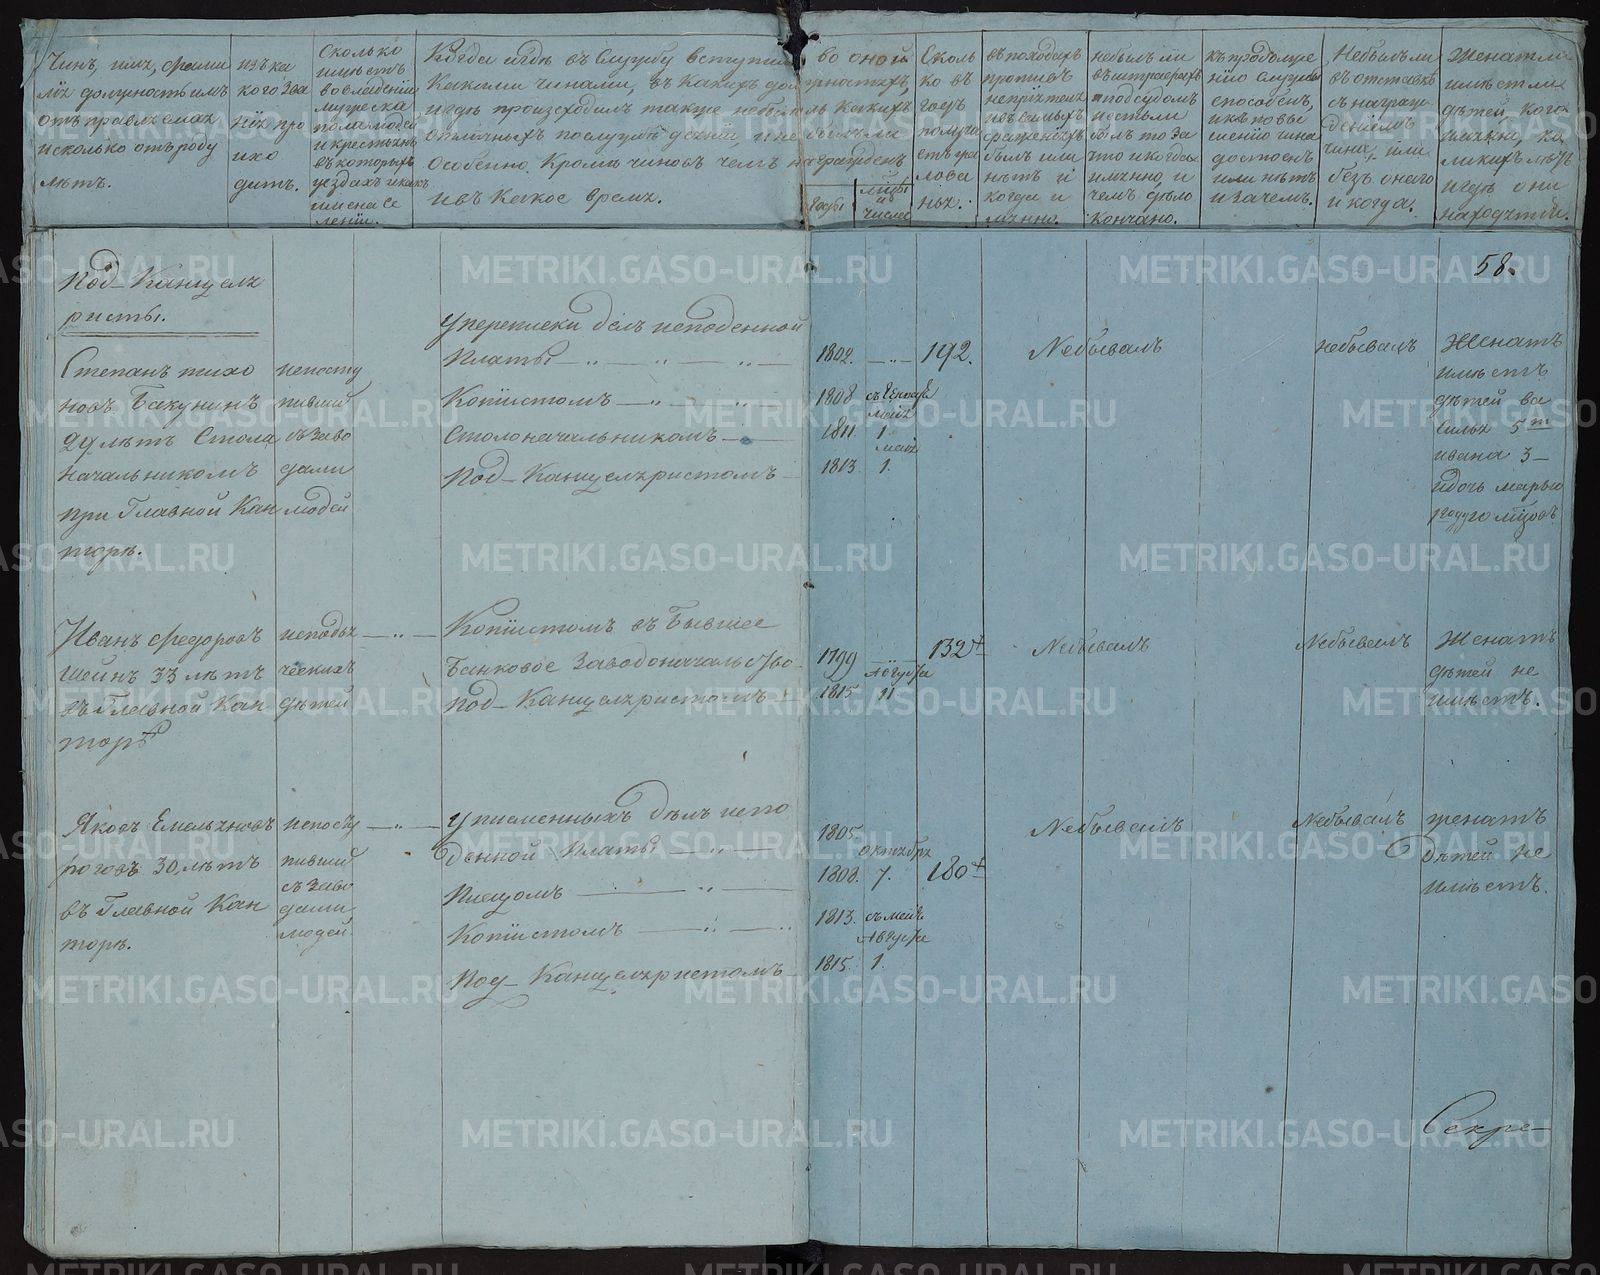 Чинъ, имя, фами
лія должность имъ
отправляемая
и сколько отъ роду
лѣтъ.
изъ ка
кого зва
нія про
ихо
дитъ.
Сколько
имѣетъ
во владеніи
мужеска
пола людей
и крестьянъ
въ которыхъ
уездахъ и какъ
имена се
леніи.
Когда и где въ службу вступилъ во оной
какими чинами, въ какихъ должностяхъ,
и где происходилъ также небыло ль какихъ
отличныхъ по службе деяній, и не былъ ли
особенно кроме чиновъ чемъ награжденъ
и въ какое время.
Годы
м{ся}цы
и
числа
Сколь
ко въ
годъ
получа
етъ жа
лова
нья.
въ походахъ
противъ
непріятеля
и въ самыхъ
сраженіяхъ
былъ или
нетъ и
когда и
имянно.
небылъ ли
въ штрафахъ
и подсудомъ
и естьли
былъ то за
что и когда
имянно и
чемъ дѣло
кончано.
къ продолже
нію службы
способенъ,
и къ повы
шенію чина
достоенъ
или нѣтъ
и зачемъ.
Небылъ ли
въ отставке
съ награж
деніемъ
чина, или
безъ онаго
и когда.
Женатъ ли
имѣетъ ли
дѣтей, кого
имянно, ка
кихъ лѣтъ
и где они
находятся.
58.
Под-Канцеля
ристы.
Степанъ Тихо
новъ Бакунинъ
29 лѣтъ Стола
начальникомъ
при Главной Кан
торѣ.
непосту
пившій
съ заво
дами
людей
У переписки делъ исподенной
платы
Копіистомъ
Столоначальникомъ
Под-Канцеляристомъ
1802.
1808 съ Генваря
1811. Маія 1.
1813 Маія 1.
192.
Небывалъ
небывалъ
Женатъ
имѣетъ
дѣтей Ва
силья 5
Ивана 3
и дочь Марью
Иванъ Федоровъ
Шеинъ 33 лѣтъ
въ Главной Кан
торѣ
исподья
ческихъ
дѣтей
Копіистомъ въ Бывшее
Банковое Заводоначальство
Под-Канцеляристомъ
1799
1815 Августа 11
132
Небывалъ
Небывалъ
Женатъ
дѣтей не
имѣетъ.
Яковъ Емельяновъ
Роговъ 30 лѣтъ
въ Главной Кан
торѣ.
непосту
пившій
съ заво
дами
людей
У писменныхъ делъ испо
денной платы
Писцомъ
Копіистомъ
Под-Канцеляристомъ
1805.
1808. Октября 7.
1813. съ Маія
1815. Августа 1.
180
Небывалъ
Небывалъ
женатъ
дѣтей не
имѣетъ.
Секре-
METRIKI.GASO-URAL.RU